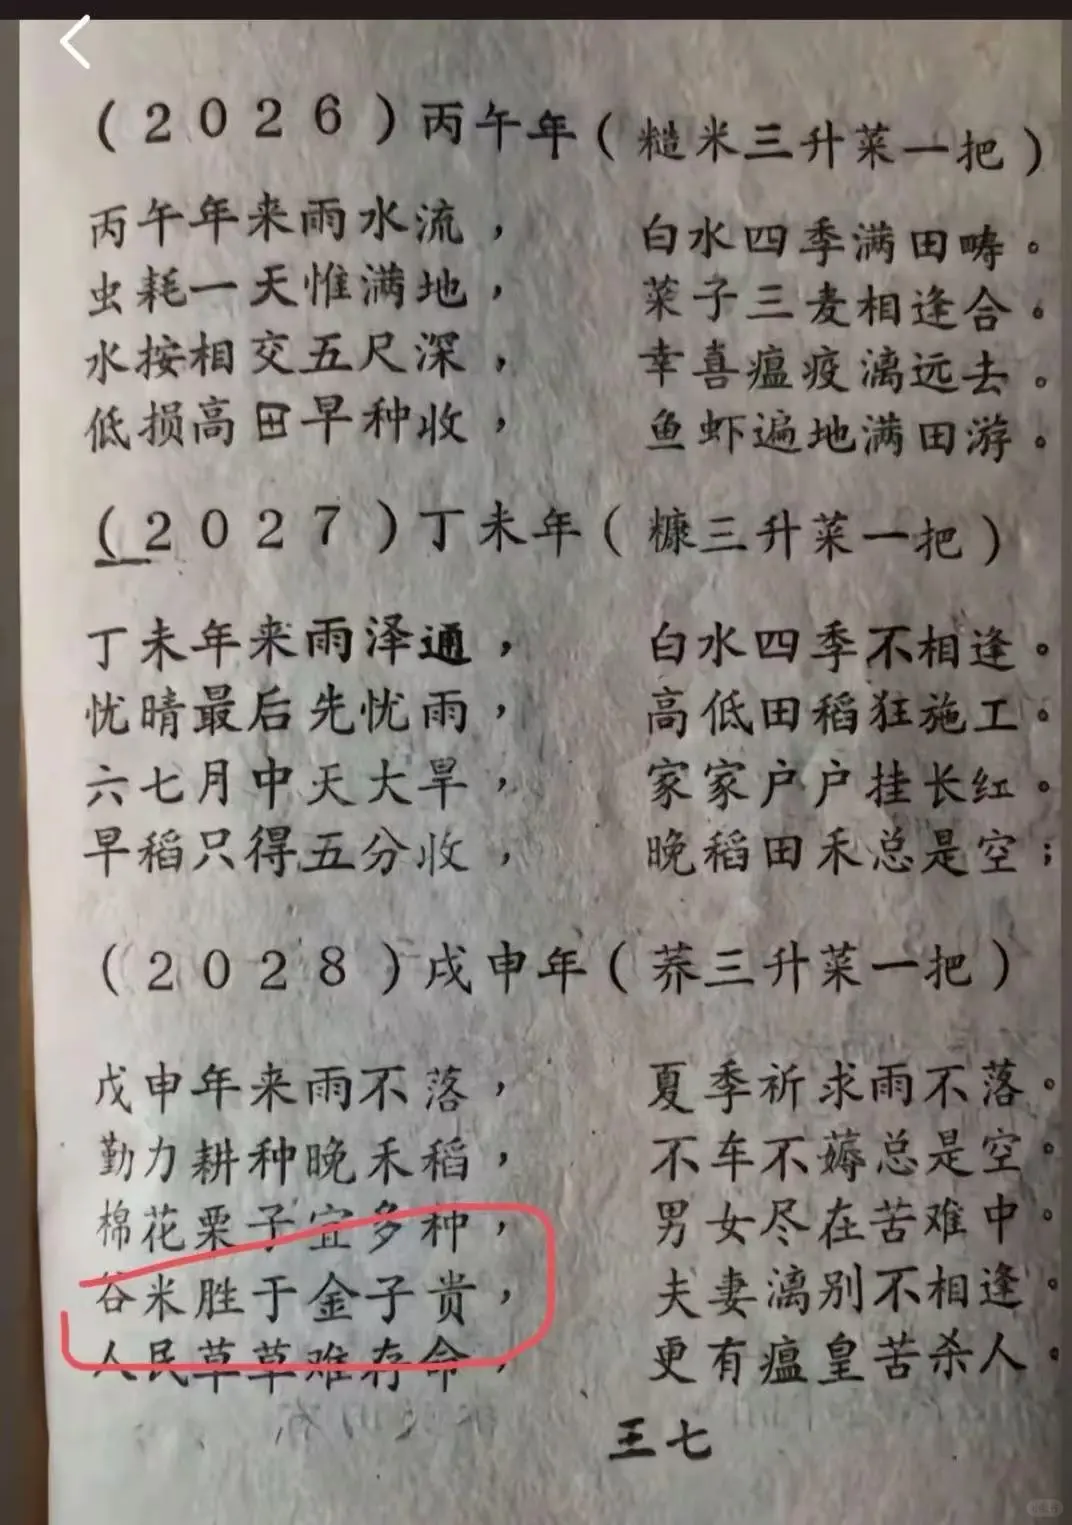 (2026)丙午年(糙米三升菜一把)
丙午年来雨水流，　白水四季满田畴。
虫耗一天惟满地，　菜子三麦相逢合。
水按相交五尺深，　幸喜瘟疫漓远去。
低损高田早种收，　鱼虾遍地满田游。
(2027)丁未年(糠三升菜一把)
丁未年来雨泽通，　白水四季不相逢。
忧晴最后先忧雨，　高低田稻狂施工。
六七月中天大旱，　家家户户挂长红。
早稻只得五分收，　晚稻田禾总是空；
(2028)戌申年(荞三升菜一把)
戊申年来雨不落，　夏季祈求雨不落。
勤力耕种晚禾稻，　不车不薅总是空。
棉花粟子宜多种，　男女尽在苦难中。
谷米胜于金子贵，　夫妻漓别不相逢。
人民草草难存命，　更有瘟皇苦杀人。
王七